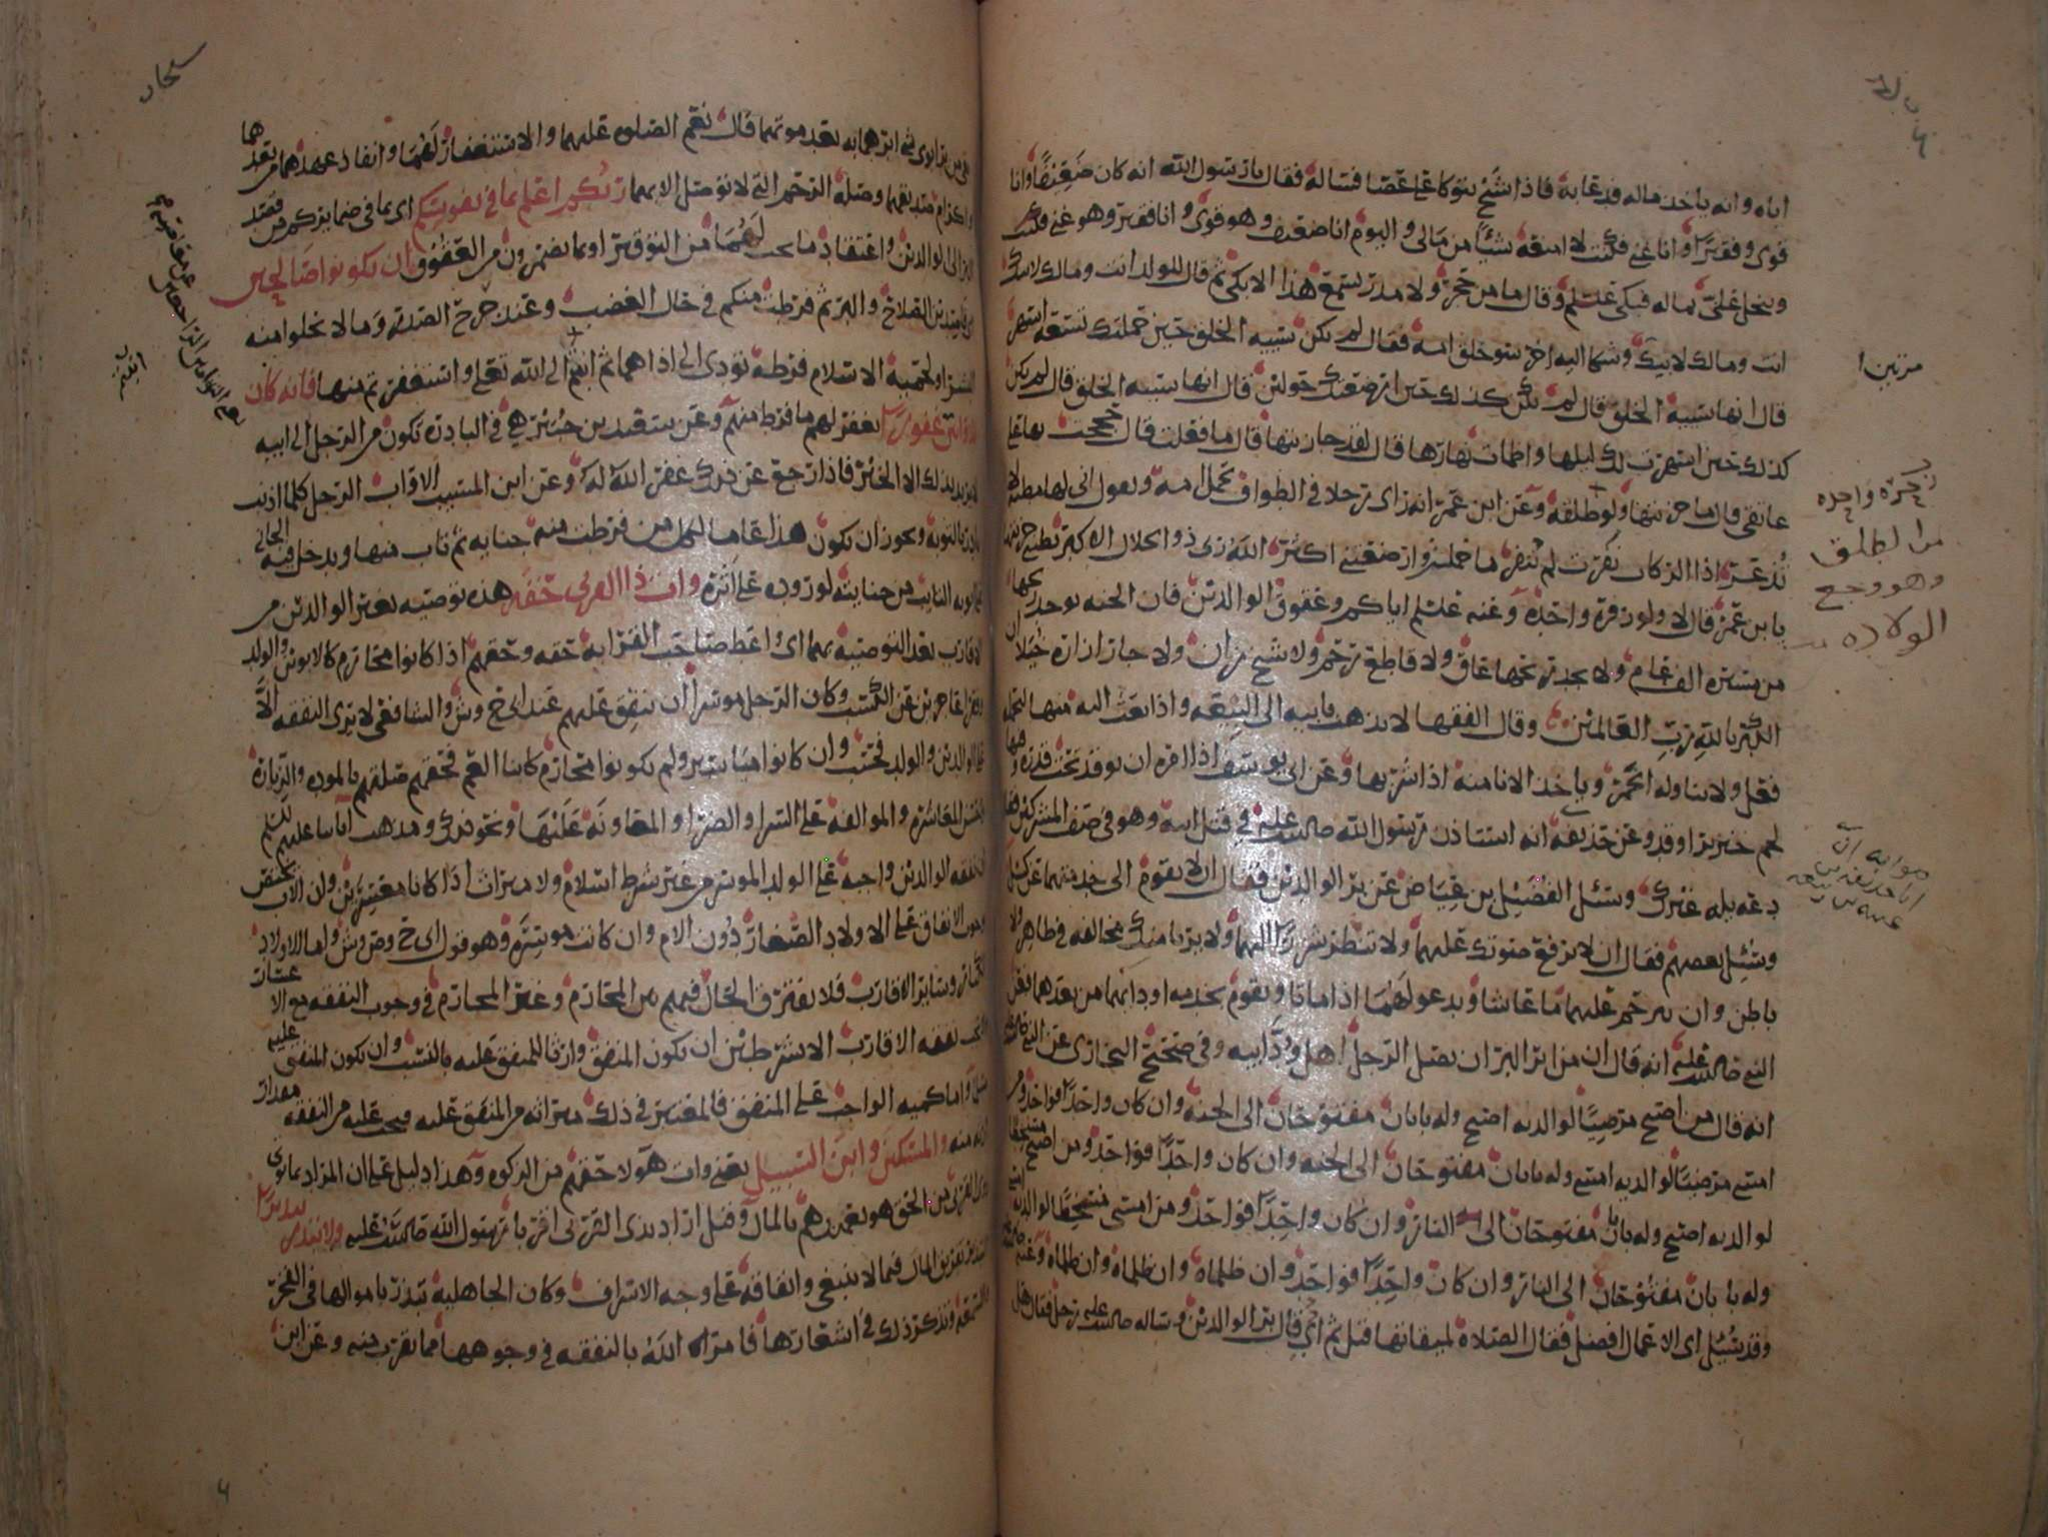 اباه وانه ياخذ ماله فدعا به فاذا شيخ يتوكا على عصا فساله فقال يا رسول الله انه كان ضعيفا وانا
قوى وفقيرا وانا غنى فكنت لا امنعه شيئا من مالى واليوم انا ضعيف وهو قوى وانا فقير وهو غنى
ويبخل على بماله فبكى عليلم وقال ما من حجر ولا مدر يسمع هذا الا بكى ثم قال للولد انت ومالك لابيك
انت ومالك لابيك وشكا اليه اخر سو خلق امه فقال لم تكن سيية الخلق حين حملتك تسعة اشهر
قال انها سيية الخلق قال لم تكن كذلك حين ارضعتك حولين قال انها سيية الخلق قال لم تكن
كذلك حين اسهرت لك ليلها واظمات نهارها قال لقد جازيتها قال ما فعلت قال حججت بها على
عاتقى قال ما جزيتها ولو طلقة وعن ابن عمر انه راى رجلا فى الطواف يحمل امه ويقول انى لها مطية لا
تذعر اذا الركاب نفرت لم تنفر ما حملت وارضعتنى اكثر الله ربى ذو الجلال الاكبر تظن جزيتها
يا ابن عمر قال لا ولو زفرة واحدة وعنه عليلم اياكم وعقوق الوالدين فان الجنة يوجد ريحها
من مسيرة الف عام ولا يجد ريحها عاق ولا قاطع رحم ولا شيخ زان ولا جار ازاره خيلا ان
الكبريا لله رب العالمين وقال الفقها لا يذهب بابيه الى البيعه واذا بعث اليه منها ليحمله
فعل ولا يناوله الخمر وياخذ الانا منه اذا شربها وعن ابى يوسف اذا امره ان يوقد تحت قدره وفيها
لحم خنزير اوقد وعن حذيفة انه استاذن رسول الله صلى الله عليه فى قتل ابيه وهو فى صف المشركين فقال
دعه يله غيرك وسئل الفضيل بن عياض عن بر الوالدين فقال ان لا يقوم الى خدمتهما عن كسل
وسئل بعضهم فقال ان لا ترفع صوتك عليهما ولا تنظر شزرا اليهما ولا يريا منك مخالفة فى ظاهر ولا
باطن وان ترحم عليهما ما عاشا وتدعو لهما اذا ماتا وتقوم بخدمة اودائهما من بعدهما فعن
النبى صلى الله عليه انه قال ان من ابر البر ان يصل الرجل اهل ود ابيه وفى صحيح البخارى عن النبى
انه قال من اصبح مرضيا لوالديه اصبح وله بابان مفتوحان الى الجنة وان كان واحدا فواحد ومن
امسى مرضيا لوالديه امسى وله بابان مفتوحان الى الجنة وان كان واحدا فواحد ومن اصبح مسخطا
لوالديه اصبح وله بابان مفتوحان الى النار وان كان واحدا فواحد ومن امسى مسخطا لوالديه
وله بابان مفتوحان الى النار وان كان واحدا فواحد وان ظلماه وان ظلماه وان ظلماه وعنه
وقد سئل اى الاعمال افضل فقال الصلاة لميقاتها قيل ثم اى قال بر الوالدين وساله صلى الله عليه رجل فقال هل
زحرة واحدة
من الطلق
وهو وجع
الولادة
بقى من بر ابوى شى ابرهما به بعد موتهما قال نعم الصلوة عليهما والاستغفار لهما وانفاذ عهدهما من بعدهما
واكرام صديقهما وصلة الرحم التى لا توصل الا بهما ربكم اعلم بما فى نفوسكم اى بما فى ضمايركم من قصد
البر الى الوالدين واعتقاد ما يجب لهما من التوقير او بما تضمرون من العقوق ان تكونوا صالحين
قاصدين الصلاح والبر ثم فرطت منكم فى حال الغضب وعند حرج الصدر وما لا يخلوا منه
البشر او لحمية الاسلام فرطة تودى الى اذاهما ثم ابتم الى الله تعلى واستغفرتم منها فانه كان
للاوابين غفورا يغفر لهم ما فرط منهم وعن سعيد بن جبير هى فى البادرة تكون من الرجل الى ابيه
لا يريد بذلك الا الخير فاذا رجع عن ذلك غفر الله له وعن ابن المسيب الاواب الرجل كلما اذنب
بادر بالتوبة ويجوز ان يكون هذا عاما لكل من فرطت منه جناية ثم تاب منها ويدخل فيه الجانى
على ابويه التايب من جنايته لوروده على اثره وات ذا القربى حقه هذه توصية بغير الوالدين من
الاقارب بعد التوصية بهما اى اعط صاحب القرابة حقه وحقهم اذا كانوا محارم كالابوين والولد
وفقرا عاجزين عن الكسب وكان الرجل موسرا ان ينفق عليهم عند ابى ح وش والشافعى لا يرى النفقه الا
على الوالدين والولد فحسب وان كانوا مياسير ولم يكونوا محارم كابنا العم فحقهم صلتهم بالمودة والزيارة
وحسن المعاشرة والموالفة على السرا والضرا والمعاونة عليها ونحو ذلك ومذهب ايمتنا عليهم السلم
ان نفقه الوالدين واجبة على الولد الموسر من غير شرط اسلام ولا ميراث اذا كانا معسرين وان الاب يختص
بوجوب الانفاق على الاولاد الصغار دون الام وان كانت موسرة وهو قول اى ح وص وش واما للاولاد
الكبار وساير الاقارب فلا يفترق الحال فيهم بين المحارم وغير المحارم فى وجوب النفقه مع الاعسار
تجب نفقه الاقارب الا بشرطين ان يكون المنفق وارثا للمنفق عليه بالنسب وان يكون المنفق عليه
واما كمية الواجب على المنفق فالمعتبر فى ذلك ميراثه من المنفق عليه فيجب عليه من النفقه مقدار
ارثه منه والمسكين وابن السبيل يعنى وات هولا حقهم من الزكوة وهذا دليل على ان المراد بما يوتى
ذوى القربى من الحق هو تعهدهم بالمال وقيل اراد بذى القربى اقربا رسول الله صلى الله عليه ولا تبذر تبذيرا
التبذير تفريق المال فيما لا ينبغى وانفاقه على وجه الاسراف وكان الجاهلية تبذر باموالها فى الفخر
والسمعة وتذكر ذلك فى اشعارها فامر الله بالنفقه فى وجوهها مما يقرب منه وعن ابن